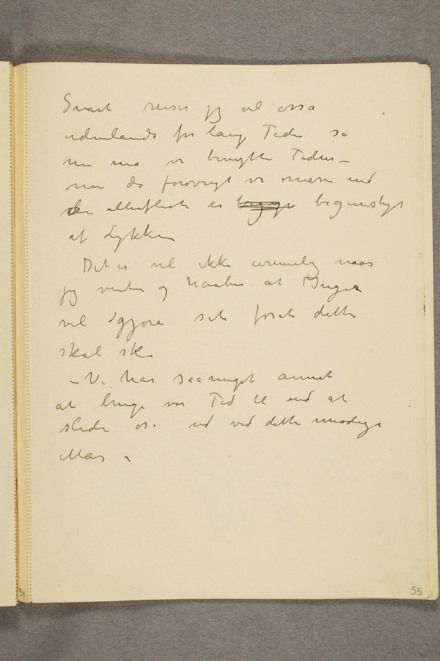 Snart reiser jeg vel ossa
udenlands for lang Tid så
nu maa vi benytte Tiden –
nu da forøvrigt vi mere end
de allerfleste er begunstiget
af Lykken
Det er vel ikke urimelig naar
jeg venter og haaber at
vil gjøre sit forat dette
skal ske
– Vi har saa meget annet
at bruge vor Tid til end at
slide os ud ved dette unødige
Mas –
55